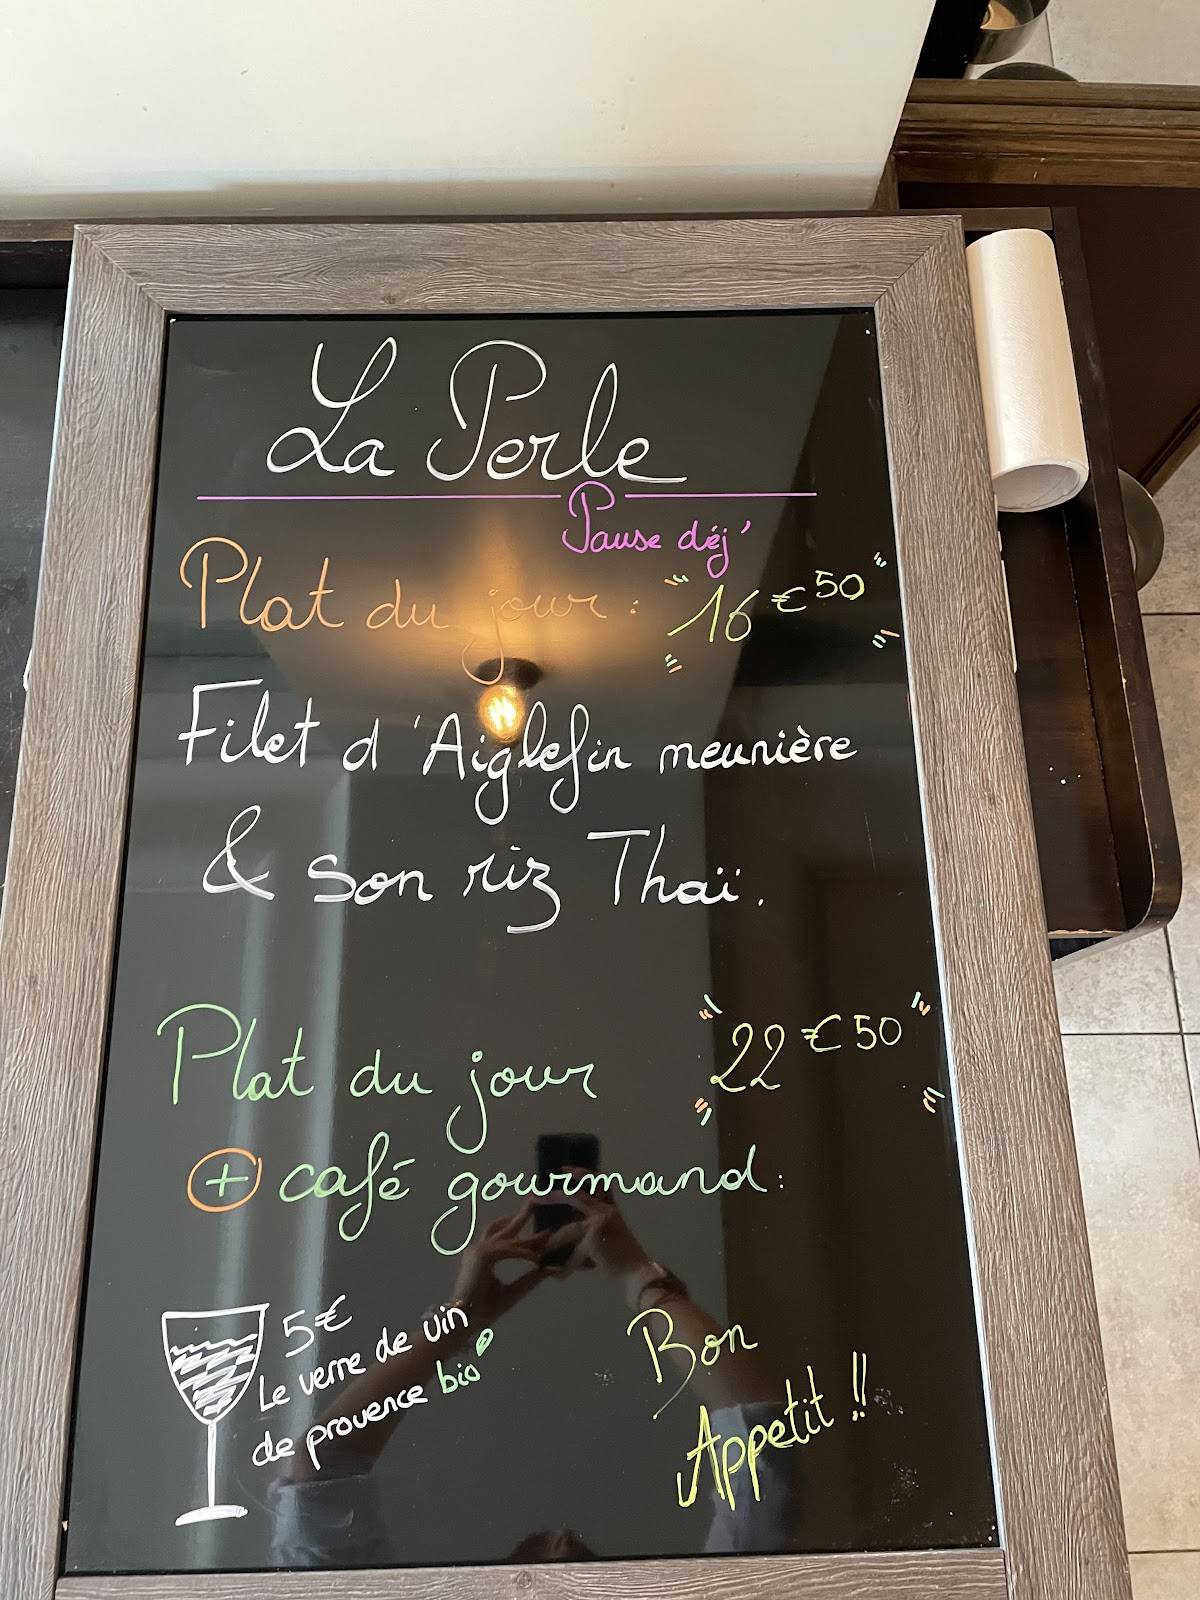 La Perle
Pause déj'
Plat du jour : 16€50
Filet d'Aiglefin meunière
& son riz Thaï.
Plat du jour 22€50
+ café gourmand :
5€
Le verre de vin
de provence bio
Bon
Appetit !!